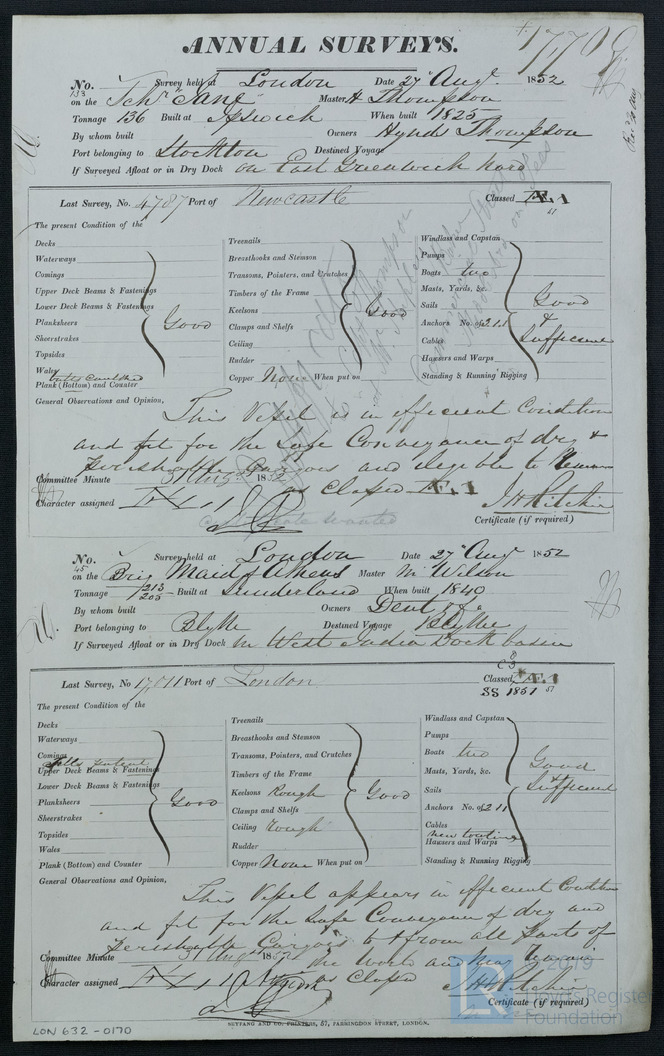 ANNUAL SURVEYS.
No. 133 Survey held at London Date 27 Augt 1852
on the Schr Jane Master H Thompson
Tonnage 136 Built at Ipswich When built 1825
By whom built Owners Hynds Thompson
Port belonging to Stockton Destined Voyage
If Surveyed Afloat or in Dry Dock on East Greenwich hard
Last Survey, No. 4787 Port of Newcastle Classed Æ.1
The present Condition of the
Decks
Waterways
Comings
Upper Deck Beams & Fastenings
Lower Deck Beams & Fastenings
Planksheers Good
Sheerstrakes
Topsides
Wales
Plank (Bottom) and Counter
Treenails
Breasthooks and Stemson
Transoms, Pointers, and Crutches
Timbers of the Frame
Keelsons Good
Clamps and Shelfs
Ceiling
Rudder
Copper None When put on
Windlass and Capstan
Pumps
Boats two
Masts, Yards, &c.
Sails Good
Anchors No. of 2.1.1 &
Cables Sufficient
Hawsers and Warps
Standing & Running Rigging
General Observations and Opinion,
This Vessel is in efficient Condition
and fit for the Safe Conveyance of dry &
Perishable Cargoes and elegible to Remain
as Classed Æ.1
Committee Minute 31 Aug 1852
Character assigned Æ 1
J H Ritchie
Certificate (if required)
No. 45 Survey held at London Date 27 Augt 1852
on the Brig Maid of Athens Master M Wilson
Tonnage 213 205 Built at Sunderland When built 1840
By whom built Owners Dent & Co.
Port belonging to Blythe Destined Voyage Blythe
If Surveyed Afloat or in Dry Dock in West India Dock basin
Last Survey, No 17,011 Port of London Classed Æ.1
SS 1851
The present Condition of the
Decks
Waterways
Comings
Upper Deck Beams & Fastenings
Lower Deck Beams & Fastenings
Planksheers Good
Sheerstrakes
Topsides
Wales
Plank (Bottom) and Counter
Treenails
Breasthooks and Stemson
Transoms, Pointers, and Crutches
Timbers of the Frame
Keelsons Rough Good
Clamps and Shelfs
Ceiling Rough
Rudder
Copper None When put on
Windlass and Capstan
Pumps
Boats two
Masts, Yards, &c. Good
Sails & Sufficient
Anchors No. of 2.1.1
Cables
new towline
Hawsers and Warps
Standing & Running Rigging
General Observations and Opinion,
This Vessel appears in efficient Condition
and fit for the Safe Conveyance of dry and
Perishable Cargoes to & from all Parts of
the World and may Remain
as Classed
Committee Minute 31 Augt 1852
Character assigned Æ 1
J H Ritchie
Certificate (if required)
SEYFANG AND CO. PRINTERS, 57, FARRINGDON STREET, LONDON.
LON 632-0170
© 2019
Lloyd's Register
Foundation